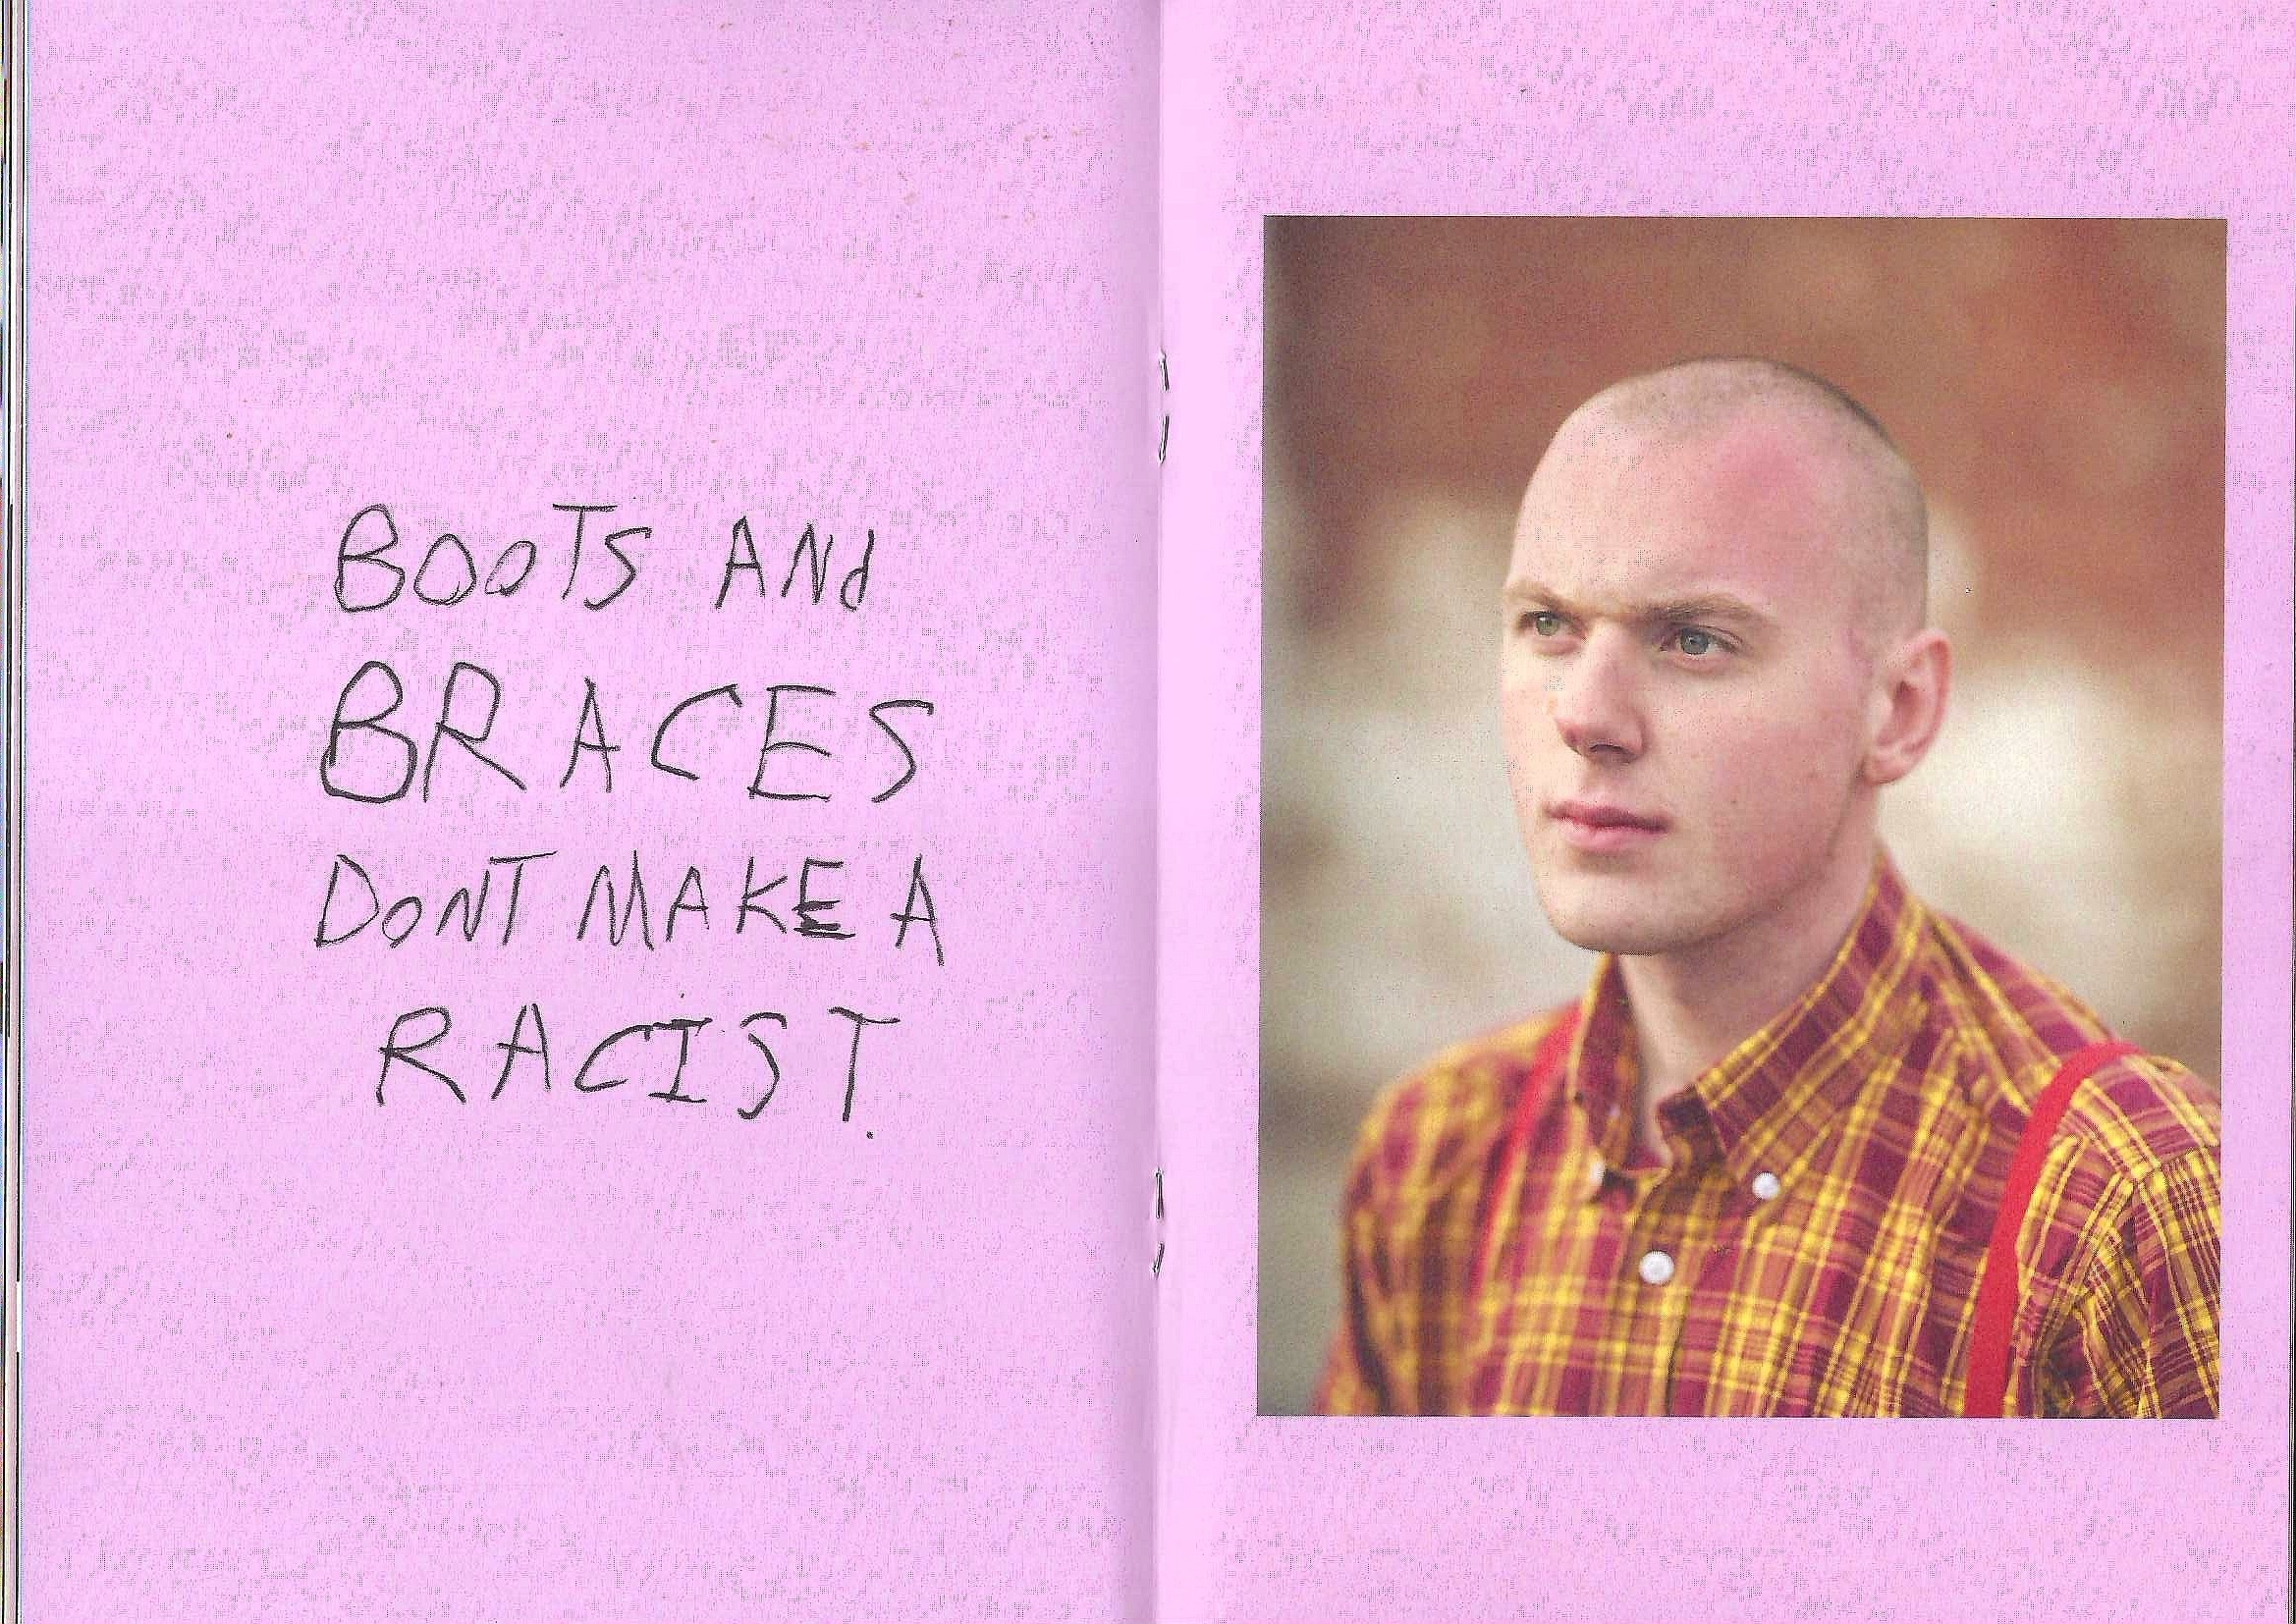 BOOTS ANd
BRACES
DONT MAKE A
RACIST.